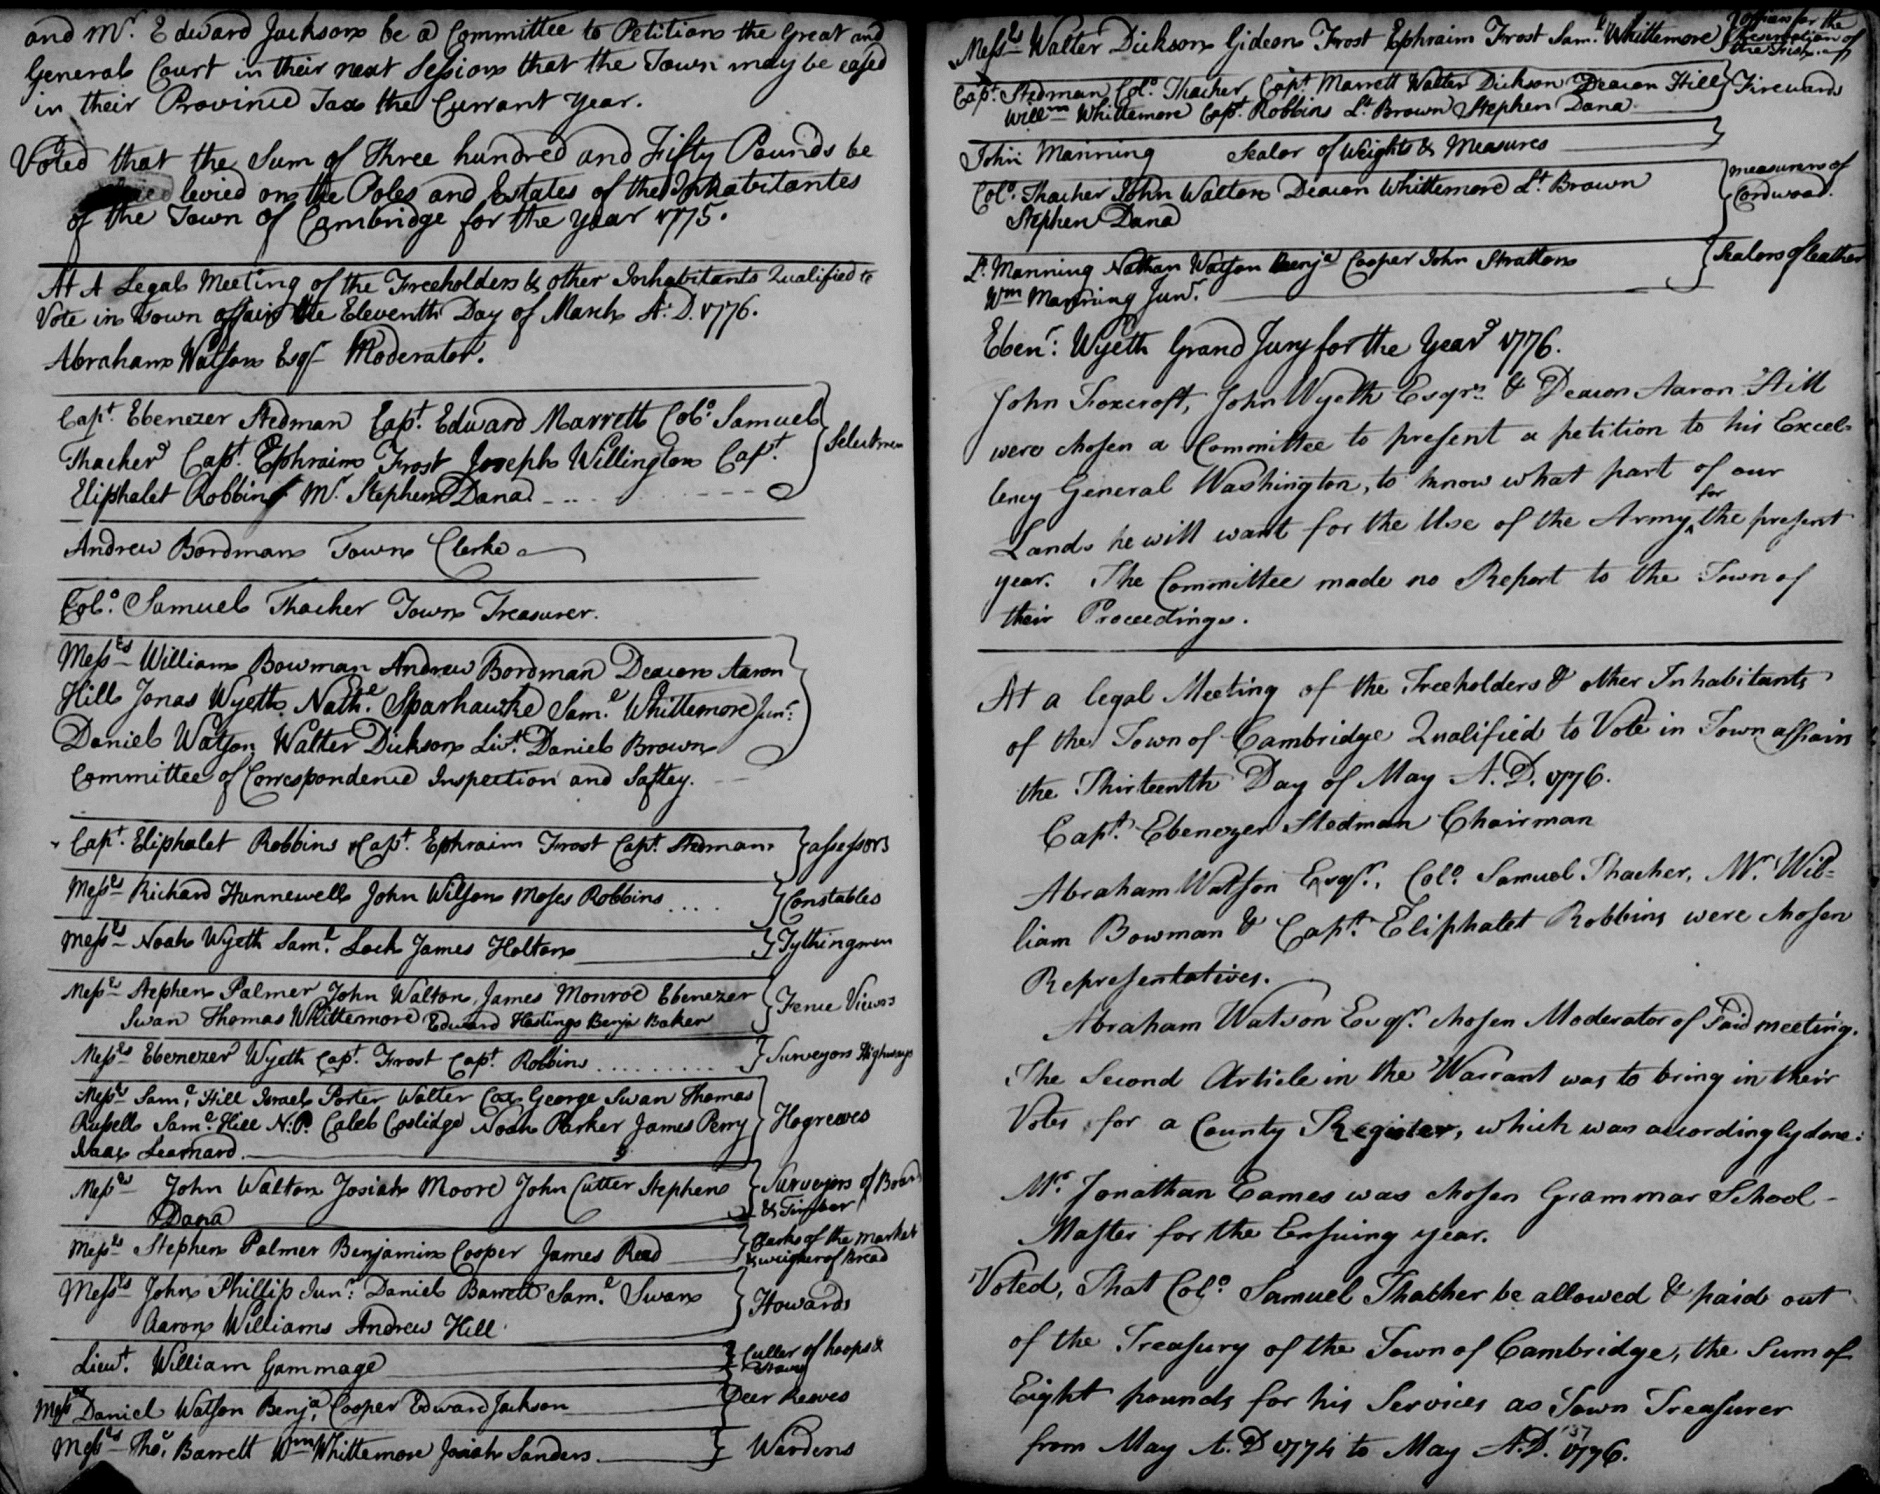 and Mr. Edward Jackson be a Committee to Petition the Great and
General Court in their next Session that the Town may be eased
in their Province Tax the Currant year.
Voted that the Sum of Three hundred and Fifty Pounds be
levied on the Poles and Estates of the Inhabitantes
of the Town of Cambridge for the year 1775.
At A Legal Meeting of the Freeholders & other Inhabitants Qualified to
Vote in Town affairs the Eleventh Day of March A:D. 1776.
Abraham Watson Esqr Moderator.
Capt. Ebenezer Stedman Capt. Edward Marrett Colo. Samuel
Thacher Capt. Ephraim Frost Joseph Wellington Capt.
Eliphalet Robbins Mr Stephen Dana
Selectmen
Andrew Bordman Town Clerke
Colo. Samuel Thacher Town Treasurer.
Messrs William Bowman Andrew Bordman Deacon Aaron
Hill Jonas Wyeth Nathl. Sparhawke Saml. Whittemore Junr:
Daniel Watson Walter Dickson Livt. Daniel Brown
Committee of Correspondence Inspection and Saftey.
Capt. Eliphalet Robbins & Capt. Ephraim Frost Capt. Stedman
assessors
Messrs Richard Hunnewell John Wilson Moses Robbins
Constables
Messrs Noah Wyeth Saml. Lock James Holton
Tythingmen
Messrs Stephen Palmer John Walton James Monroe Ebenezer
Swan Thomas Whittemore Edward Hastings Benja Baker
Fence Viewers
Messrs Ebenezer Wyeth Capt. Frost Capt. Robbins
Surveyors Highways
Messrs Saml. Hill Israel Porter Walter Cox George Swan Thomas
Russell Saml. Hill N:P. Caleb Coolidge Noah Parker James Perry
Isaac Learnard.
Hogreeves
Messrs John Walton Josiah Moore John Cutter Stephen
Dana
Surveyors of Boards
& Timber
Messrs Stephen Palmer Benjamin Cooper James Read
Clarks of the market
& weigher of Bread
Messrs John Phillips Junr. Daniel Barrett Saml. Swan
Aaron Williams Andrew Hill
Howards
Lieut. William Gammage
Culler of hoops &
Staves
Messrs Daniel Watson Benja. Cooper Edward Jackson
Deer Reeves
Messrs Thos. Barrett Wm Whittemore Josiah Sanders
Wardens
Messrs Walter Dickson Gideon Frost Ephraim Frost Saml. Whittemore
Officers for the
Preservation of
the Fish
Capt. Stedman Colo. Thacher Capt. Marrett Walter Dickson Deacon Hill
Willm Whittemore Capt. Robbins Lt. Brown Stephen Dana
Firewards
John Manning Sealor of Weights & Measures
Colo. Thacher John Walton Deacon Whittemore Lt. Brown
Stephen Dana
measurers of
Cordwood.
Lt. Manning Nathan Watson Benja Cooper John Stratton
Wm Manning Junr.
Sealors of leather
Ebenr: Wyeth Grand Jury for the Year 1776.
John Foxcroft, John Wyeth Esqrs. & Deacon Aaron Hill
were chosen a Committee to present a petition to his Excel-
lency General Washington, to know what part of our
Lands he will want for the Use of the Army for the present
year. The Committee made no Report to the Town of
their Proceedings.
At a legal Meeting of the Freeholders & other Inhabitants
of the Town of Cambridge Qualified to Vote in Town affairs
the Thirteenth Day of May A.D. 1776.
Capt. Ebenezer Stedman Chairman
Abraham Watson Esqr., Colo. Samuel Thacher, Mr. Wil=
liam Bowman & Capt. Eliphalet Robbins were chosen
Representatives.
Abraham Watson Esqr. chosen Moderator of Said meeting.
The Second Article in the Warrant was to bring in their
Votes for a County Register, which was accordingly done:
Mr. Jonathan Eames was chosen Grammar School-
Master for the Ensuing year.
Voted, That Colo. Samuel Thatcher be allowed & paid out
of the Treasury of the Town of Cambridge, the Sum of
Eight pounds for his Services as Town Treasurer
from May A.D 1774 to May A.D. 1776.